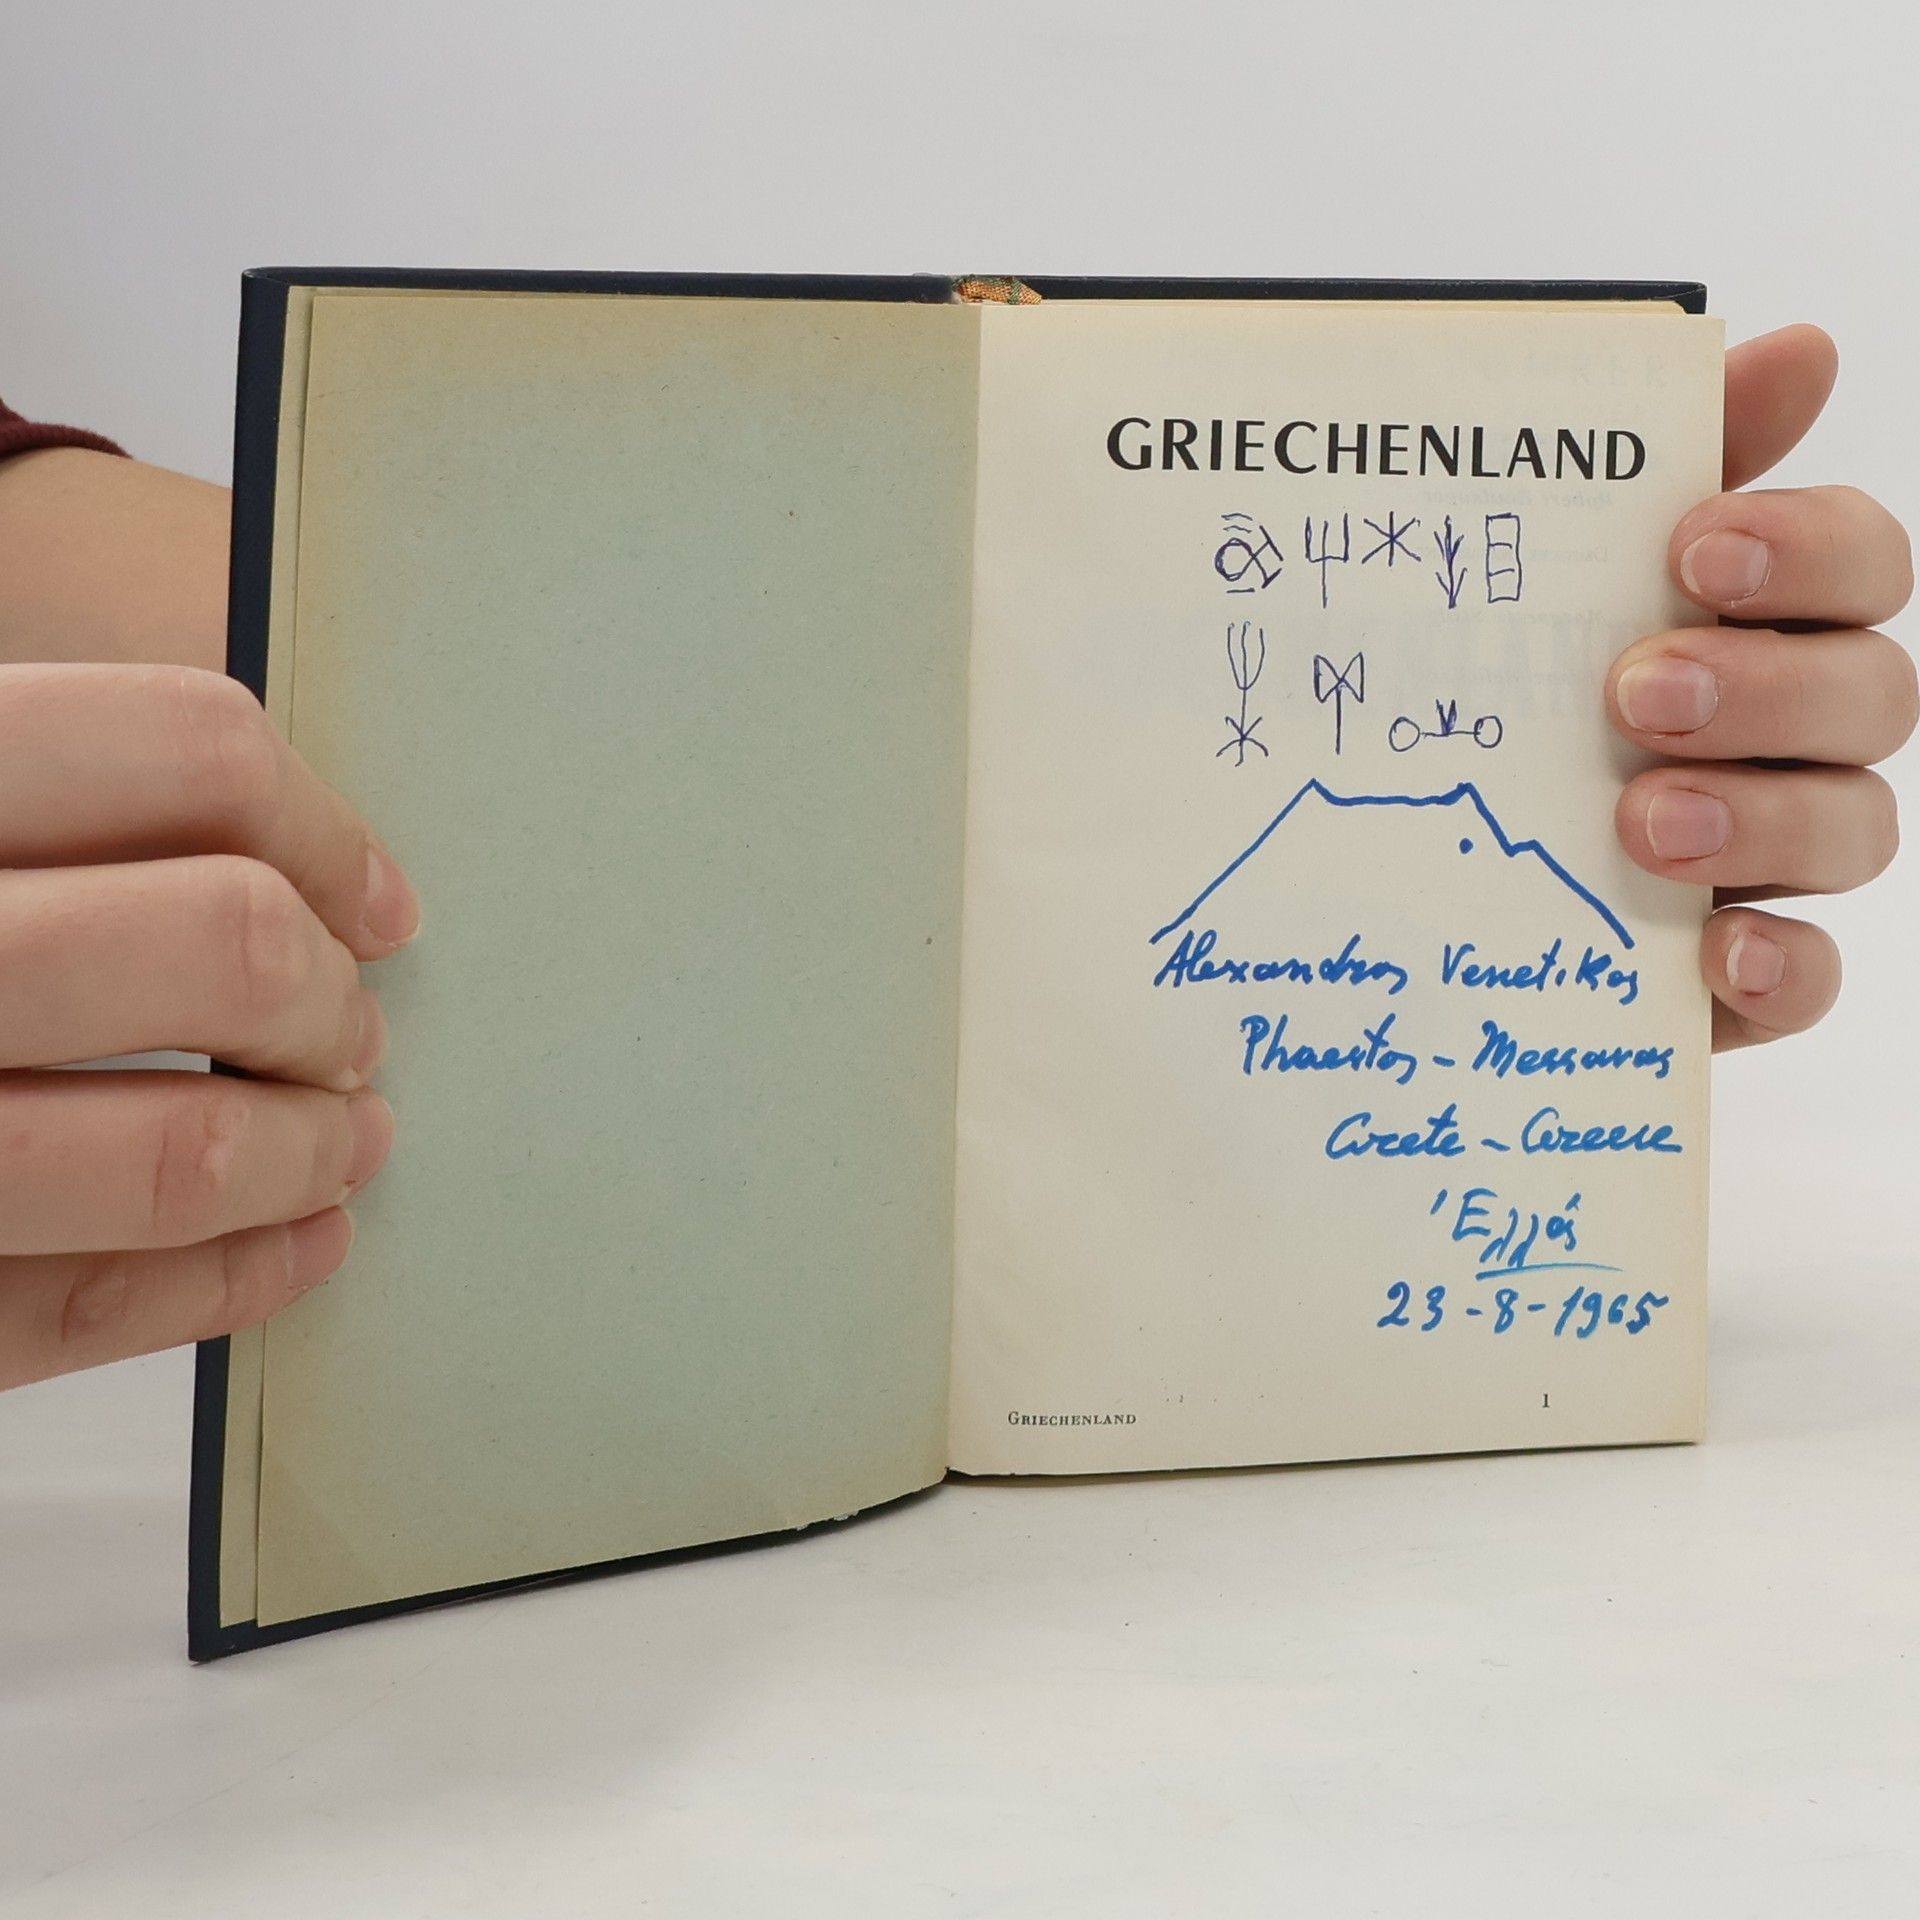 GRIECHENLAND
Alexandros Venetikos
Phaestos - Messaras
Crete - Greece
'Ελλάς
23-8-1965
GRIECHENLAND 1